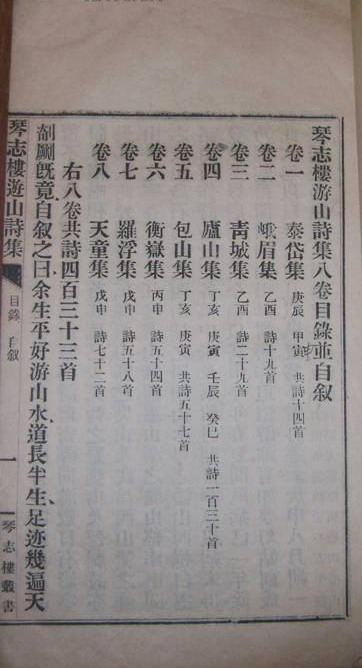 琴志樓游山詩集八卷目錄並自叙
卷一 泰岱集 庚辰 甲寅 共詩十四首
卷二 峨眉集 乙酉 詩十九首
卷三 青城集 乙酉 詩二十九首
卷四 廬山集 丁亥 庚寅 壬辰 癸巳 共詩一百三十首
卷五 包山集 丁亥 庚寅 共詩五十七首
卷六 衡嶽集 丙申 詩五十四首
卷七 羅浮集 戊申 詩五十八首
卷八 天童集 戊申 詩七十二首
右八卷共詩四百三十三首
剞劂既竟自叙之曰余生平好游山水道長半生足迹幾遍天
琴志樓遊山詩集 目錄 自叙 一 琴志樓叢書